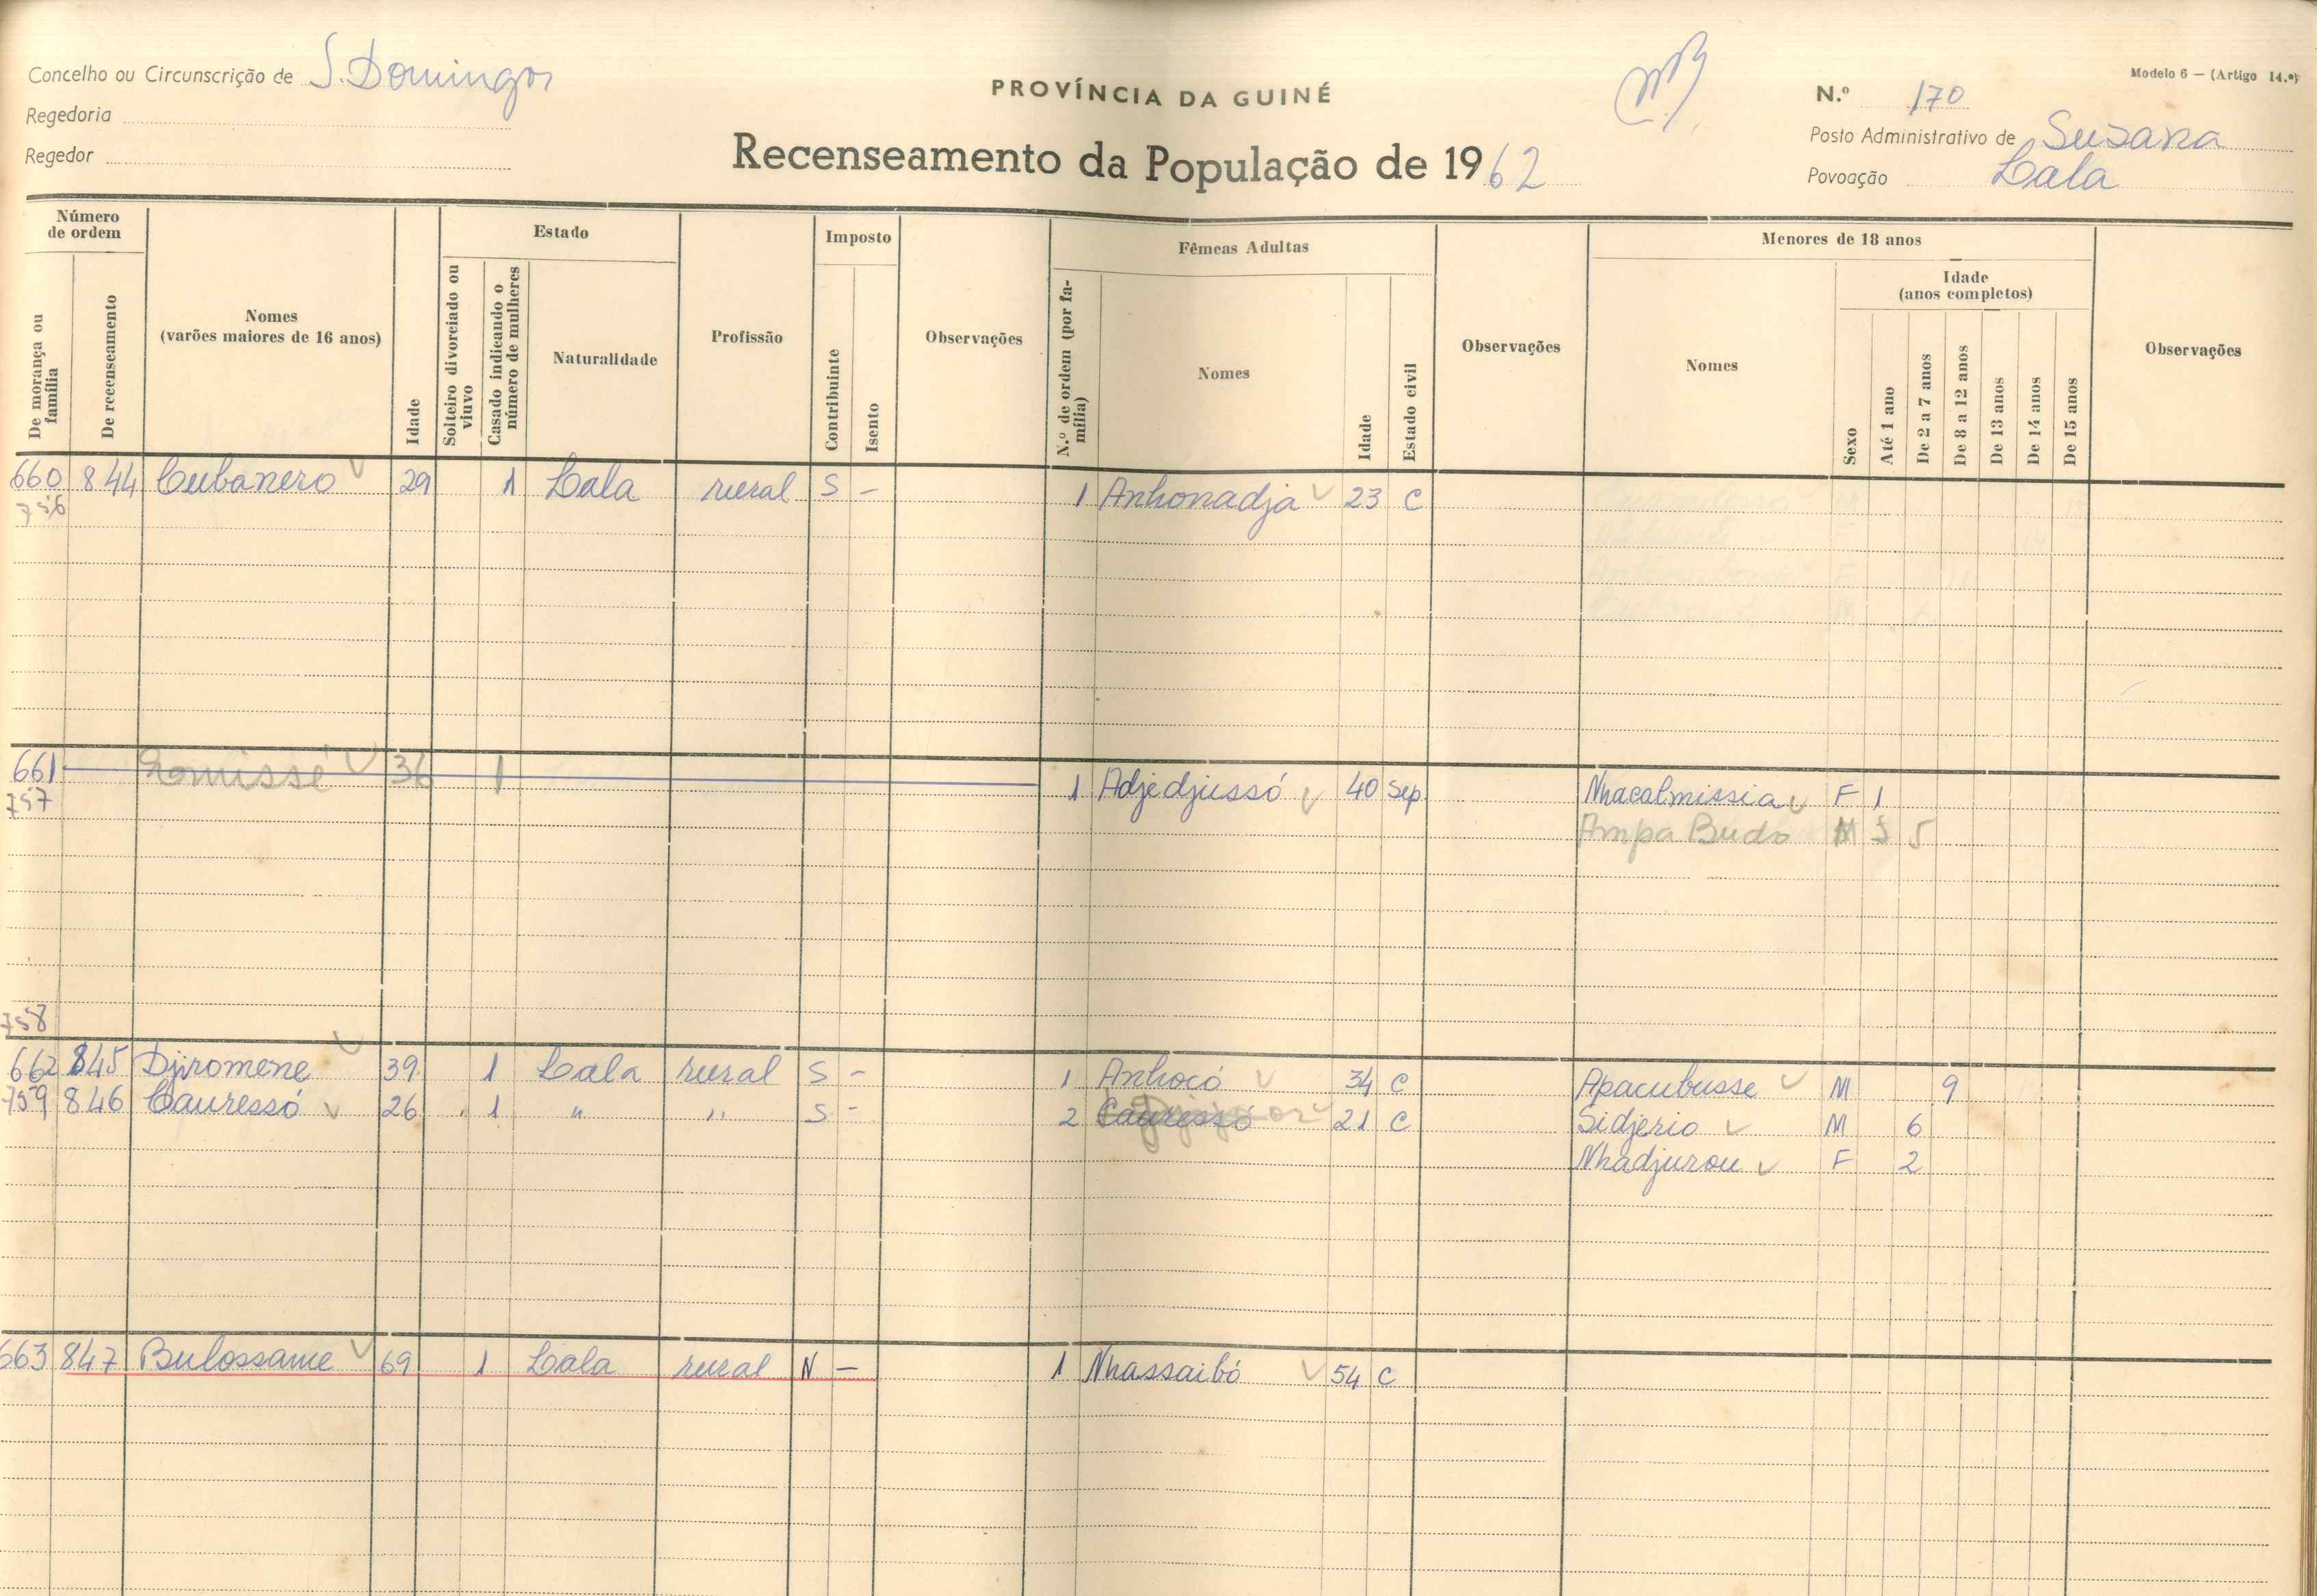 Concelho ou Circunscrição de S. Domingos
Regedoria
Regedor
PROVÍNCIA DA GUINÉ
Recenseamento da População de 1962
Modelo 6 — (Artigo 14.º)
N.º 170
Posto Administrativo de Susana
Povoação Lala
Número de ordem
De morança ou família
De recenseamento
Nomes (varões maiores de 16 anos)
Idade
Estado
Solteiro divorciado ou viuvo
Casado indicando o número de mulheres
Naturalidade
Profissão
Imposto
Contribuinte
Isento
Observações
Fêmeas Adultas
N.º de ordem (por família)
Nomes
Idade
Estado civil
Observações
Menores de 18 anos
Nomes
Sexo
Idade (anos completos)
Até 1 ano
De 2 a 7 anos
De 8 a 12 anos
De 13 anos
De 14 anos
De 15 anos
Observações
660 844 Cubanero 29 1 Lala rural S - 1 Anhonadja 23 C
756
661 36 1 1 Adjedjussó 40 Sep Nhacalmissia F 1
757 Ampa Budo M 5
758
662 845 Djiromene 39 1 Lala rural S - 1 Anhocó 34 C Apacubusse M 9
759 846 Cauressó 26 1 " " S - 2 21 C Sidjerio M 6
Nhadjurou F 2
663 847 Bulossame 69 1 Lala rural N - 1 Nhassaibó 54 C